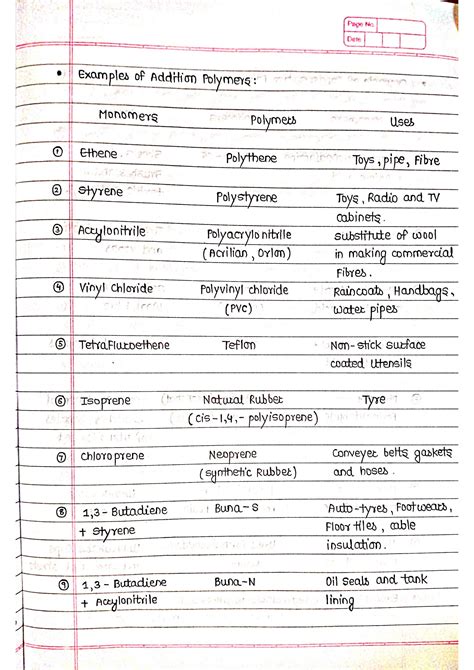 Page No.
Date
• Examples of Addition Polymers:
Monomers Polymers Uses
① Ethene Polythene Toys, pipe, Fibre
② Styrene Polystyrene Toys, Radio and TV
cabinets.
③ Acrylonitrile Polyacrylonitrile substitute of wool
(Acrilian, Orlon) in making commercial
Fibres.
④ Vinyl Chloride Polyvinyl chloride Raincoats, Handbags,
(PVC) water pipes
⑤ TetraFluroethene Teflon Non-stick surface
coated Utensils
⑥ Isoprene Natural Rubber Tyre
(cis-1,4,-polyisoprene)
⑦ Chloroprene Neoprene Conveyer belts, gaskets
(synthetic Rubber) and hoses.
⑧ 1,3-Butadiene Buna-S Auto-tyres, Footwears,
+ Styrene Floor tiles, cable
insulation.
⑨ 1,3-Butadiene Buna-N Oil seals and tank
+ Acrylonitrile lining